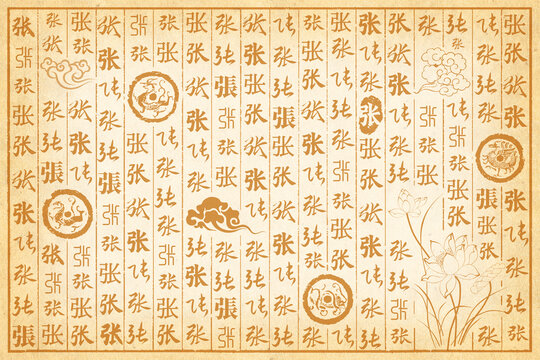 张张张张张张张张张张
张张张张张张张張张张张
张张张张
张张张张张张
张张张张张张张
张张张张张张张张张张张
张张张张张张张张张张
张张张张张张张张张张张
张张张张张张张张张
张张张张张张张张张张张
張张张张张张张张张张张
张张张张张张张张张张
张张张张张张张张张
张张张张张张张张张张
张张张张张張张张张张张
张张张张张张张张张张张
张张张张张張张张张张
张张张张张张张张张张張